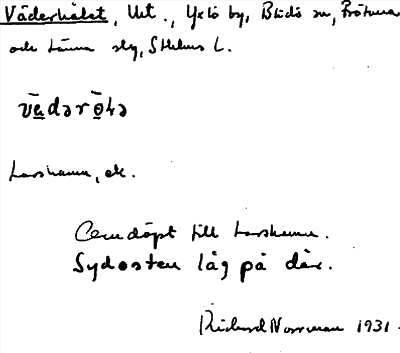 Väderhålet, Ut., Yxlö by, Blidö sn, Frötuna
och Länna skg, Sthlms L.
vādərōlə
Larshamn, ek.
Omdöpt till Larshamn.
Sydosten låg på där.
Richard Norrman 1931.